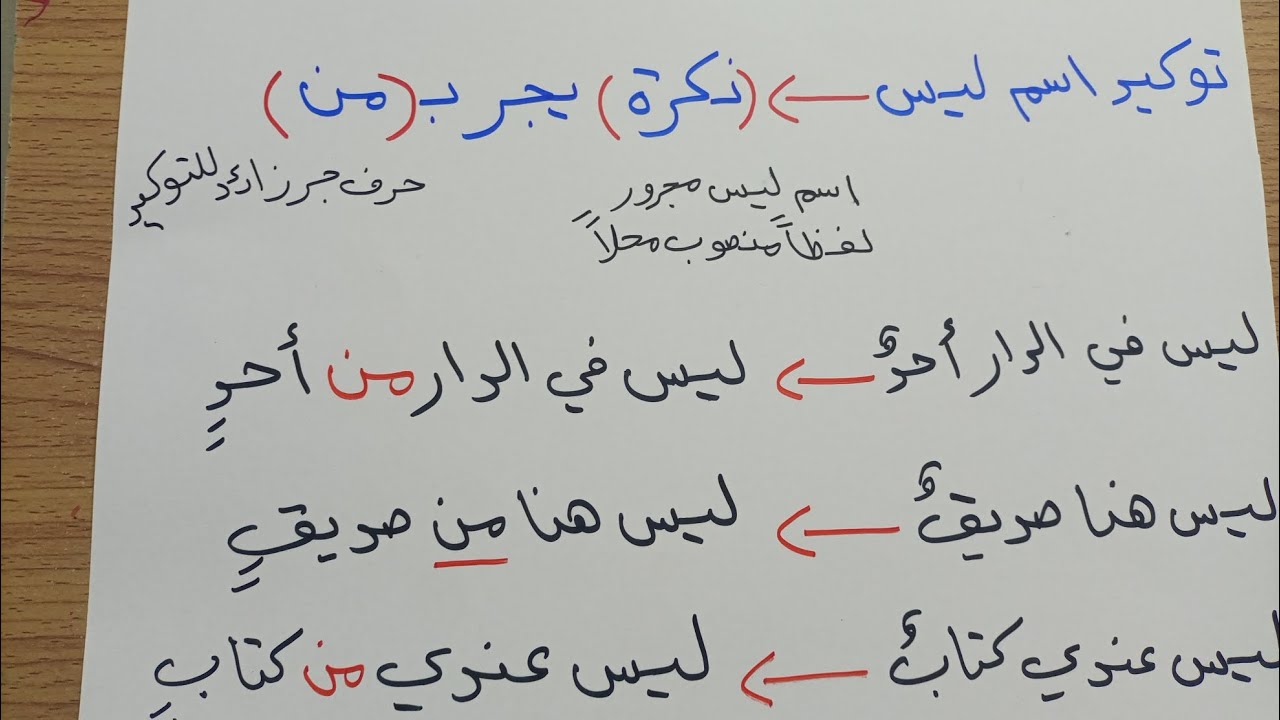 توكيد اسم ليس ← (نكرة) يجر بـ (من)
اسم ليس مجرور
لفظاً منصوب محلاً
حرف جر زائد للتوكيد
ليس في الدار أحدٌ ← ليس في الدار من أحدٍ
ليس هنا صديقٌ ← ليس هنا من صديقٍ
ليس عندي كتابٌ ← ليس عندي من كتابٍ